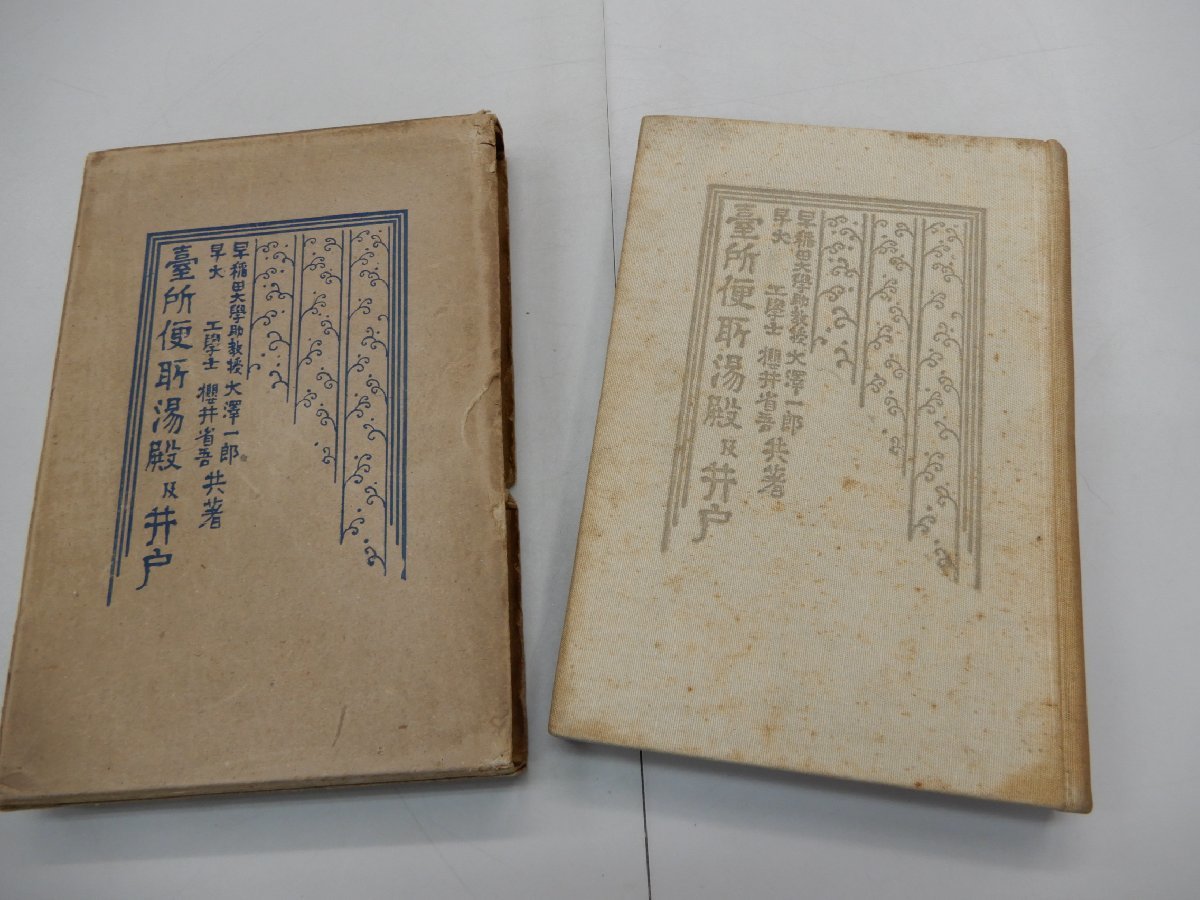 早稲田大學助教授 大澤一郎
早大 工學士 櫻井省吾 共著
臺所便所湯殿及井戸
早稲田大學助教授 大澤一郎
早大 工學士 櫻井省吾 共著
臺所便所湯殿及井戸